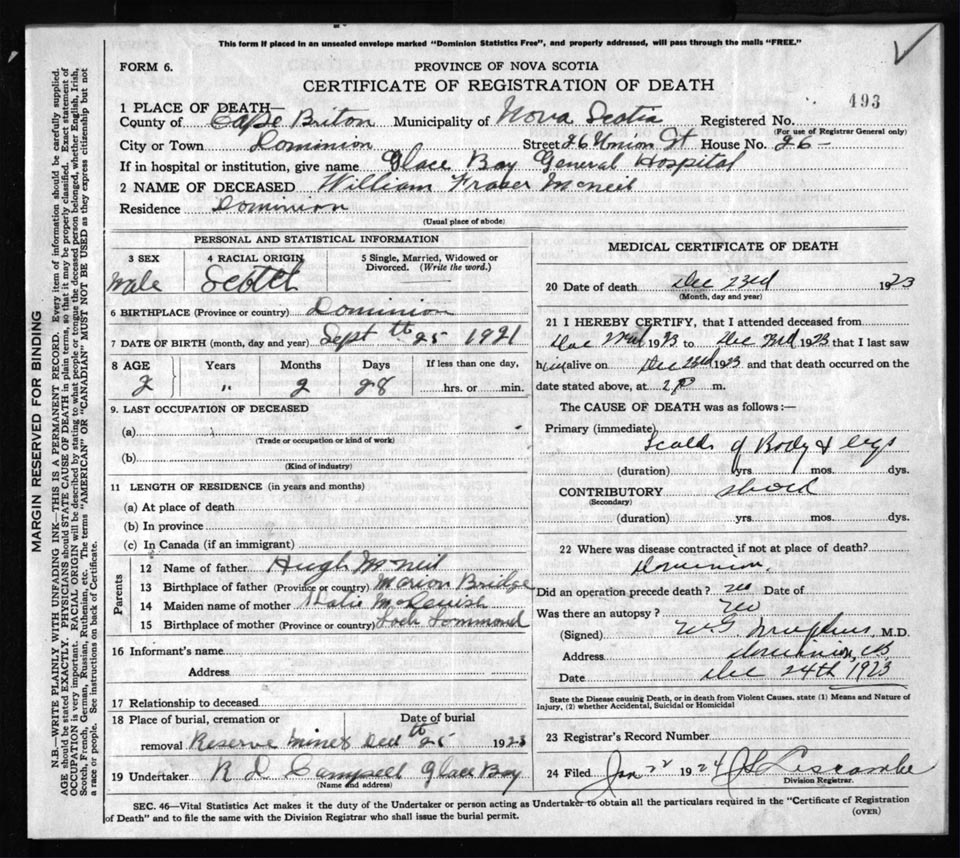 This form if placed in an unsealed envelope marked "Dominion Statistics Free", and properly addressed, will pass through the mails "FREE."
FORM 6.
PROVINCE OF NOVA SCOTIA
CERTIFICATE OF REGISTRATION OF DEATH
493
1 PLACE OF DEATH—
County of Cape Briton Municipality of Nova Scotia Registered No.
(For use of Registrar General only)
City or Town Dominion Street 26 Union St House No. 26-
If in hospital or institution, give name Glace Bay General Hospital
2 NAME OF DECEASED William Fraser McNeil
Residence Dominion
(Usual place of abode)
PERSONAL AND STATISTICAL INFORMATION
3 SEX 4 RACIAL ORIGIN 5 Single, Married, Widowed or Divorced. (Write the word.)
Male Scotch
6 BIRTHPLACE (Province or country) Dominion
7 DATE OF BIRTH (month, day and year) Sept th 25 1921
8 AGE Years Months Days If less than one day,
2 " 2 28 hrs. or min.
9. LAST OCCUPATION OF DECEASED
(a)
(Trade or occupation or kind of work)
(b)
(Kind of industry)
11 LENGTH OF RESIDENCE (in years and months)
(a) At place of death
(b) In province
(c) In Canada (if an immigrant)
Parents
12 Name of father Hugh McNeil
13 Birthplace of father (Province or country) Marion Bridge
14 Maiden name of mother
15 Birthplace of mother (Province or country) Loch Lommond
16 Informant's name
Address
17 Relationship to deceased
18 Place of burial, cremation or removal Reserve Mines
Date of burial Dec th 25 1923
19 Undertaker R D Campbell Glace Bay
(Name and address)
MEDICAL CERTIFICATE OF DEATH
20 Date of death Dec 23rd 1923
(Month, day and year)
21 I HEREBY CERTIFY, that I attended deceased from
Dec 1923 to Dec 23rd 1923 that I last saw
him alive on Dec 23rd 1923 and that death occurred on the
date stated above, at 2 P m.
The CAUSE OF DEATH was as follows:—
Primary (immediate) Scalds of Body & legs
(duration) yrs. mos. dys.
CONTRIBUTORY shock
(Secondary)
(duration) yrs. mos. dys.
22 Where was disease contracted if not at place of death?
Dominion.
Did an operation precede death? no Date of
Was there an autopsy? no
(Signed) M.D.
Address Dominion, CB
Date Dec 24th 1923
State the Disease causing Death, or in death from Violent Causes, state (1) Means and Nature of
Injury, (2) whether Accidental, Suicidal or Homicidal
23 Registrar's Record Number
24 Filed Jan 22 1924 Liscombe
Division Registrar.
SEC. 46—Vital Statistics Act makes it the duty of the Undertaker or person acting as Undertaker to obtain all the particulars required in the "Certificate of Registration
of Death" and to file the same with the Division Registrar who shall issue the burial permit.
(OVER)
MARGIN RESERVED FOR BINDING
N.B.—WRITE PLAINLY WITH UNFADING INK—THIS IS A PERMANENT RECORD. Every item of information should be carefully supplied.
AGE should be stated EXACTLY. PHYSICIANS should STATE CAUSE OF DEATH in plain terms, so that it may be properly classified. Exact statement of
OCCUPATION is very important. RACIAL ORIGIN will be described by stating to what people or tongue the deceased person belonged, whether English, Irish,
Scotch, French, German, Russian, Ruthenian, etc. The terms "AMERICAN" or "CANADIAN" MUST NOT BE USED as they express citizenship but not
a race or people. See instructions on back of Certificate.